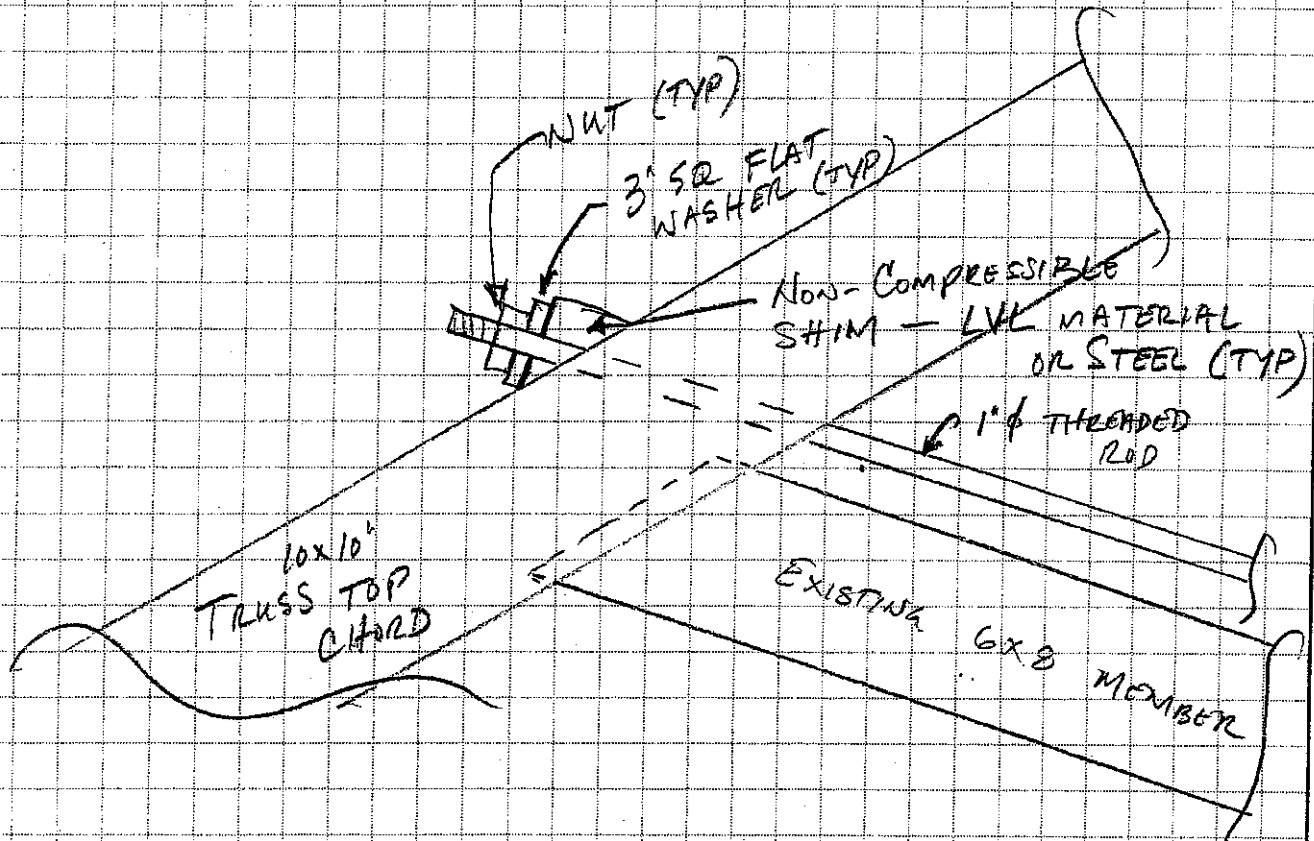 NUT (TYP)
3" SQ FLAT
WASHER (TYP)
NON-COMPRESSIBLE
SHIM — LVL MATERIAL
OR STEEL (TYP)
1"ϕ THREADED
ROD
10x10"
TRUSS TOP
CHORD
EXISTING 6x8 MEMBER